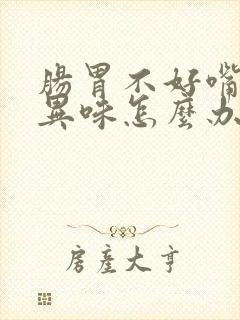 腸胃不好嘴
異味怎麼办
房產大亨